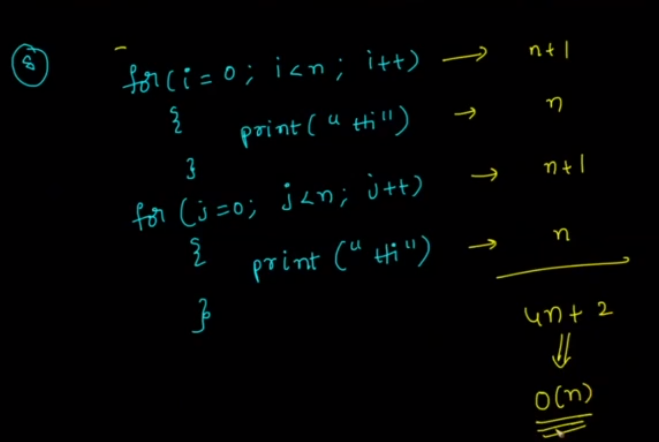 8
for(i=0; i<n; i++) → n+1
{ print("Hi") → n
}
for (j=0; j<n; j++) → n+1
{ print("Hi") → n
}
4n+2
⇓
O(n)